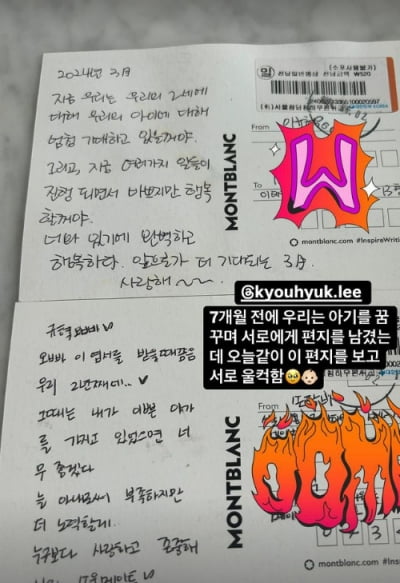 2024년 3월
지금 우리는 우리의 2세에
대해 우리의 아이에 대해
엄청 기대하고 있을꺼야.
그리고, 지금 여러가지 일들이
진행 되면서 바쁘지만 행복
할꺼야.
너와 있기에 완벽하고
행복하다. 앞으로가 더 기대되는 3월
사랑해~~
MONTBLANC
(소포사용불가)
전남일반통상 전납금액 ₩520
From
To
montblanc.com #InspireWriti
W
@kyouhyuk.lee
7개월 전에 우리는 아기를 꿈
꾸며 서로에게 편지를 남겼는
데 오늘같이 이 편지를 보고
서로 울컥함🥹👶🏻
규혁오빠♡
오빠 이 엽서를 받을때쯤은
우리 2년째네..♡
그때는 내가 이쁜 아가
를 가지고 있었으면 너
무 좋겠다
늘 아내로써 부족하지만
더 노력할게.
누구보다 사랑하고 존중해
MONTBLANC
From
montblanc.com #InspireWriti